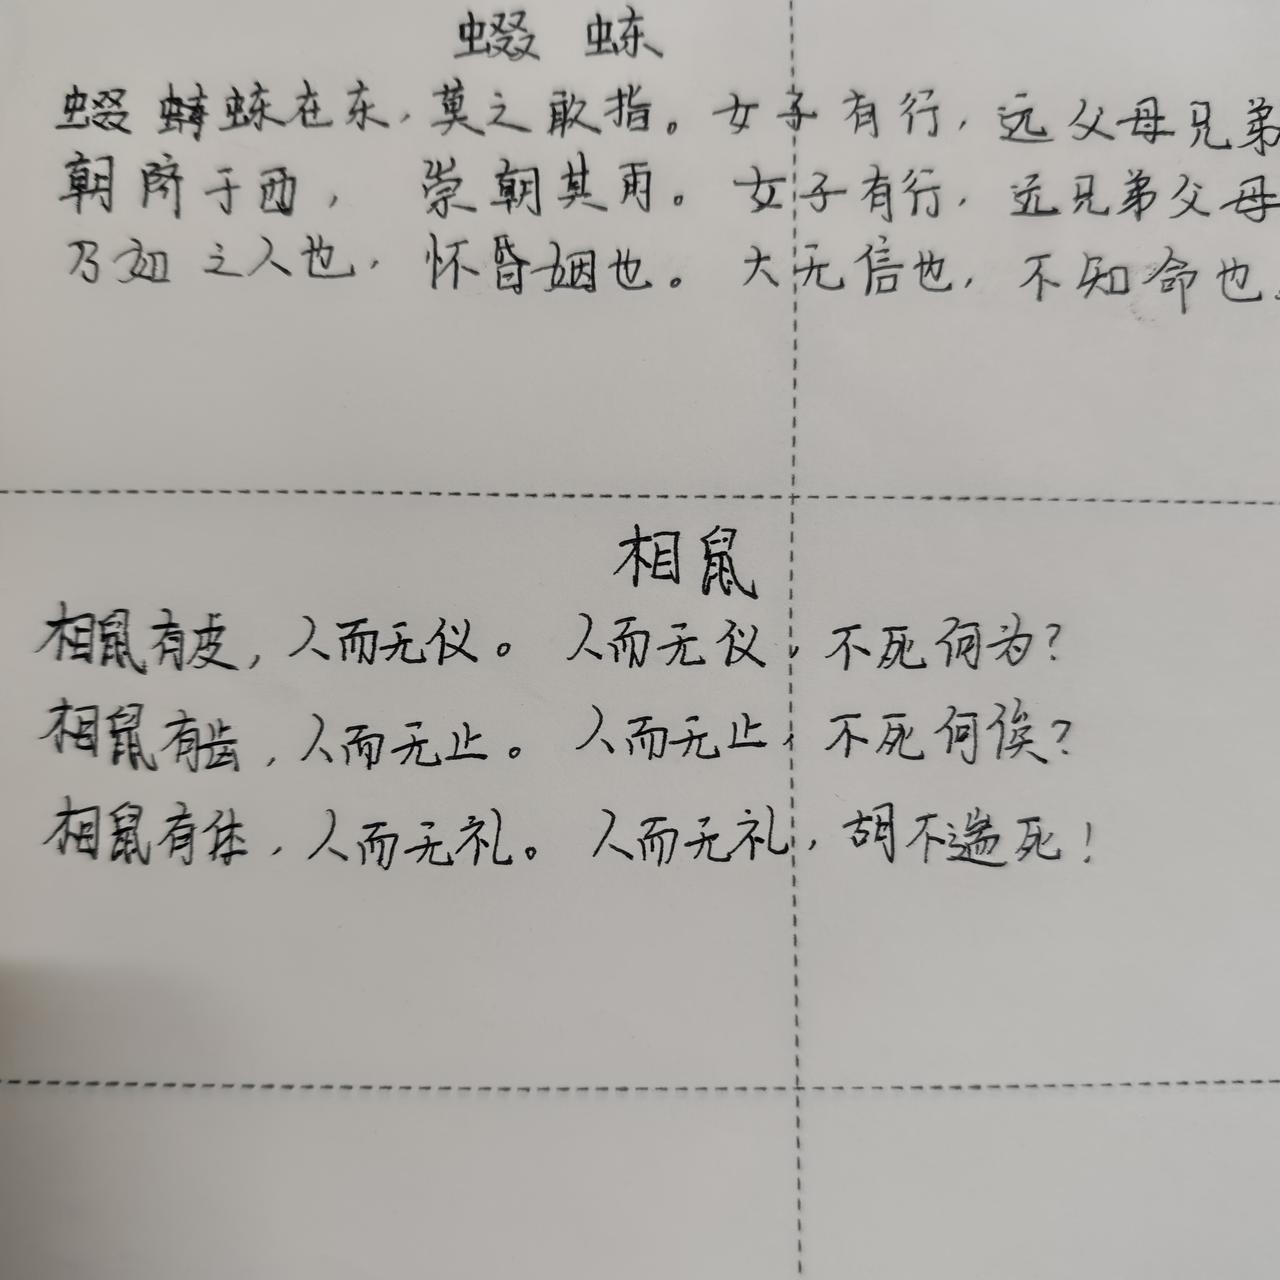 蝃 蝀
蝃蝀在东，莫之敢指。女子有行，远父母兄弟
朝隮于西，崇朝其雨。女子有行，远兄弟父母
乃如之人也，怀昏姻也。大无信也，不知命也。
相鼠
相鼠有皮，人而无仪。人而无仪，不死何为？
相鼠有齿，人而无止。人而无止，不死何俟？
相鼠有体，人而无礼。人而无礼，胡不遄死！